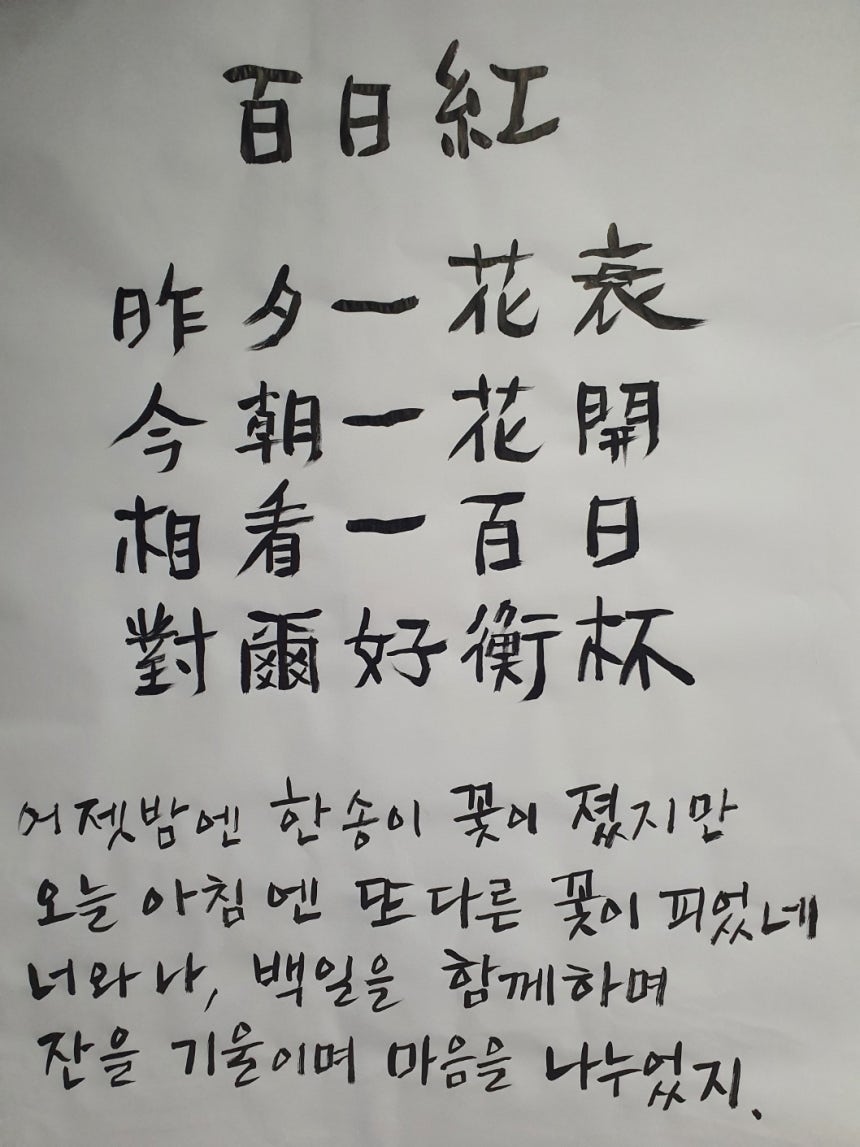 百日紅
昨夕一花衰
今朝一花開
相看一百日
對爾好衡杯
어젯밤엔 한송이 꽃이 졌지만
오늘 아침엔 또다른 꽃이 피었네
너와 나, 백일을 함께하며
잔을 기울이며 마음을 나누었지.